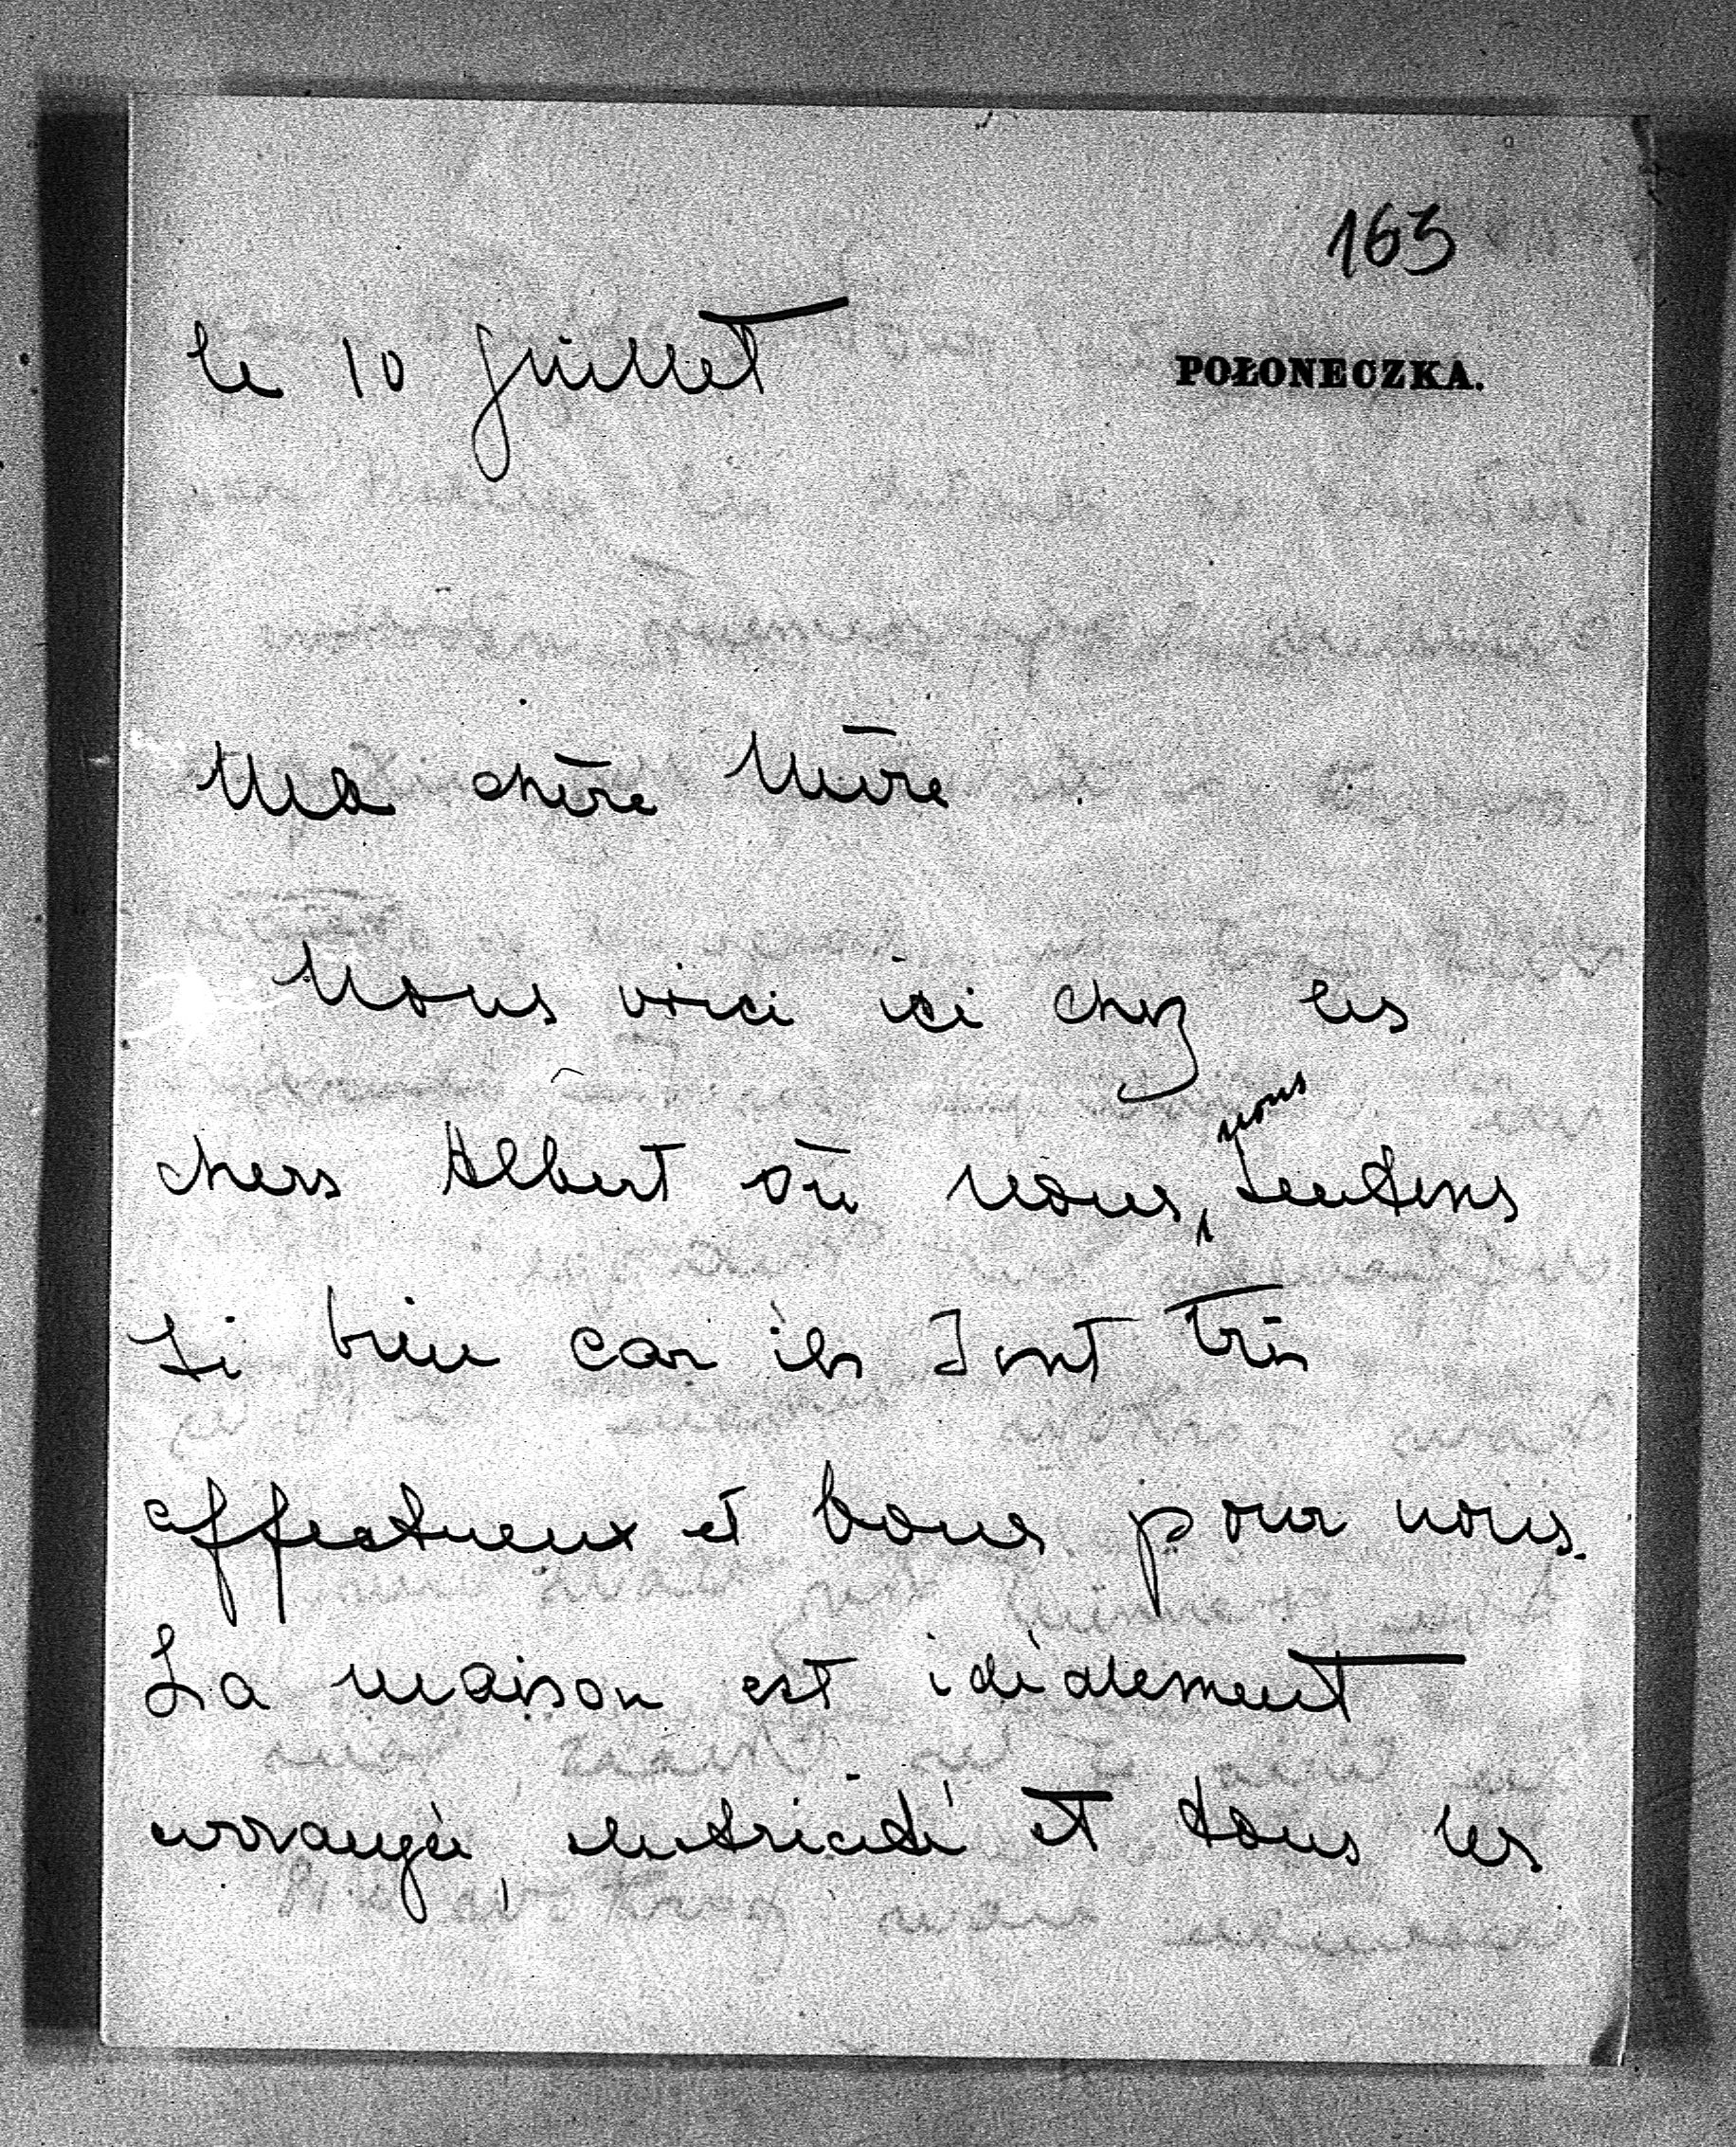 163
le 10 juillet
POŁONECZKA.
Ma chère Mère
Nous voici ici chez les
chers Albert où nous, nous sentons
si bien car ils sont très
affectueux et bons pour nous.
La maison est idéalement
arrangée, électricité et tous les